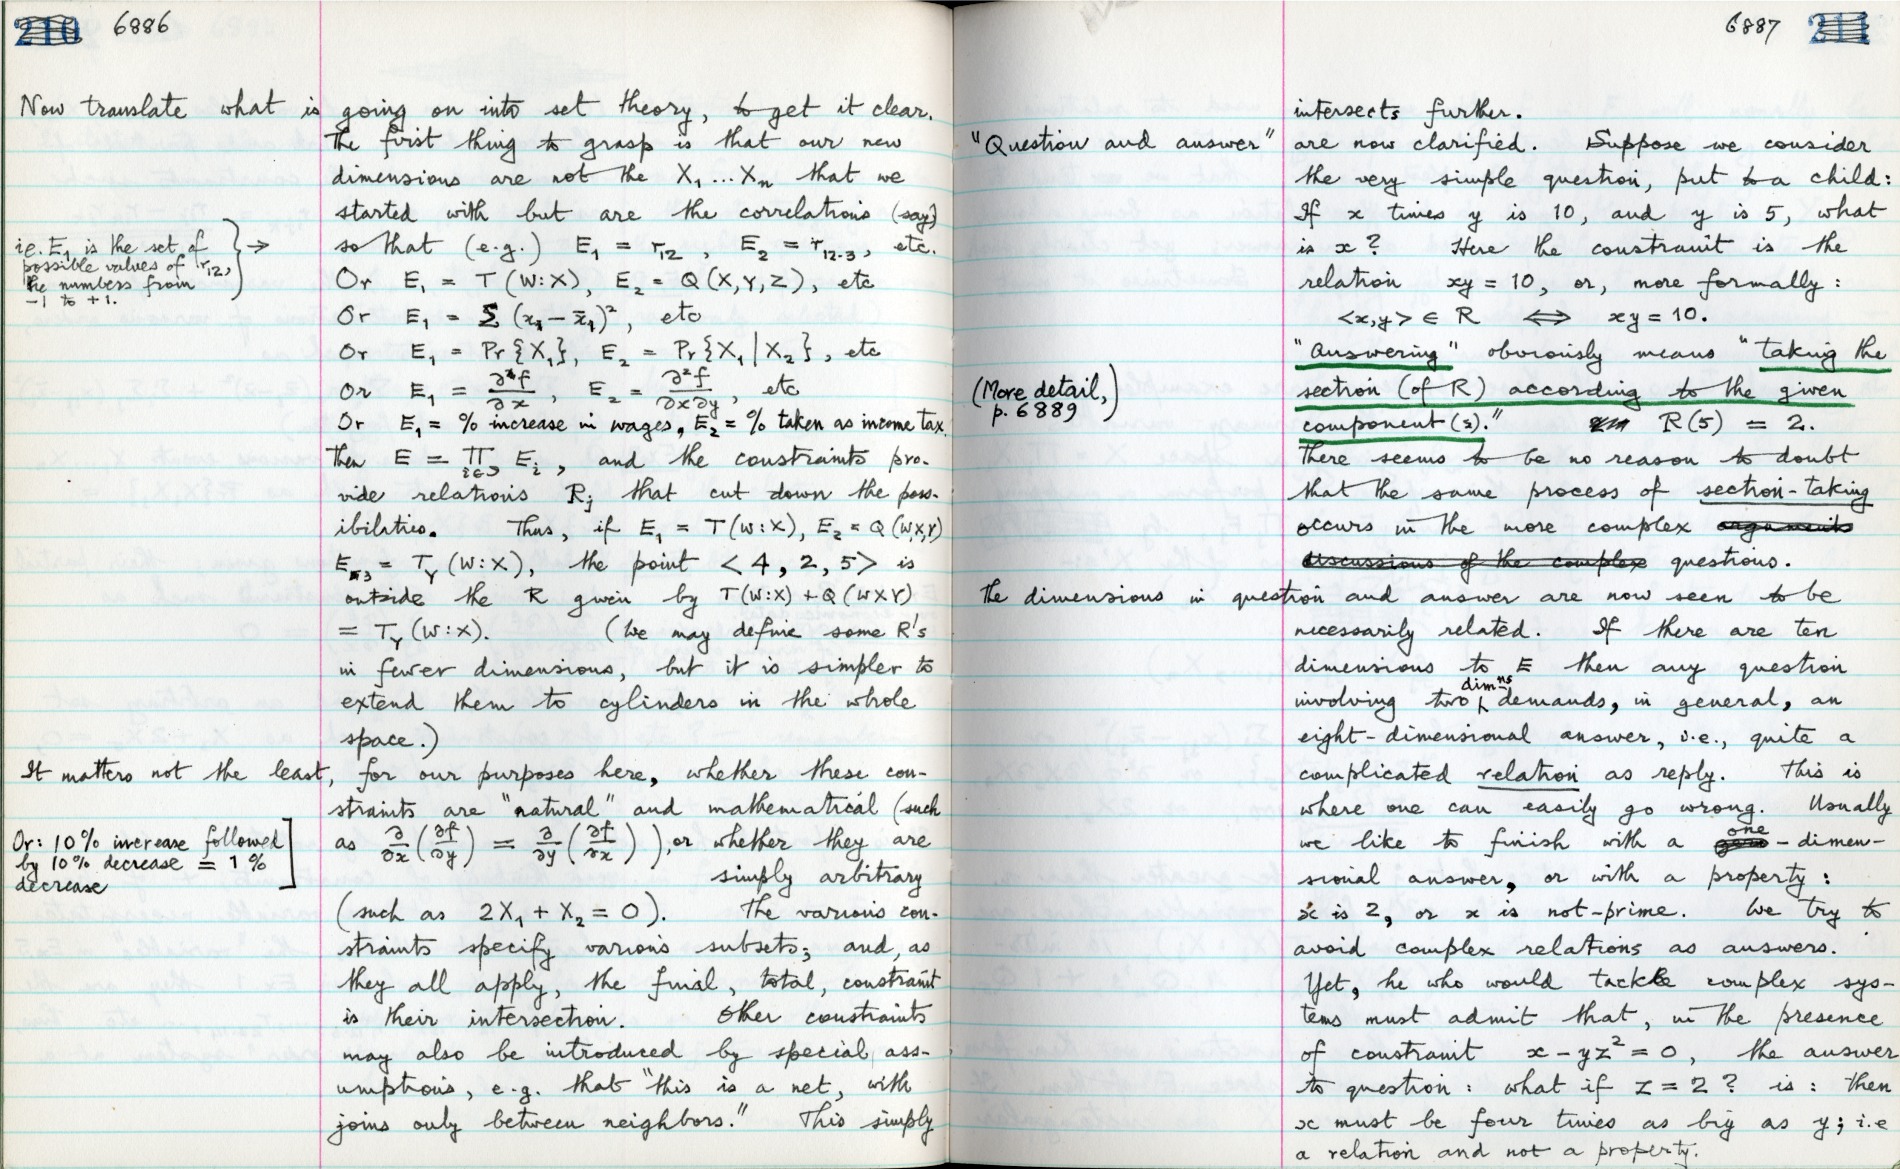 210 6886
Now translate what is going on into set theory, to get it clear.
The first thing to grasp is that our new
dimensions are not the X₁ ... Xₙ that we
started with but are the correlations (say)
i.e. E₁ is the set of
possible values of r₁₂,
the numbers from
-1 to +1.
so that (e.g.) E₁ = r₁₂, E₂ = r₁₂.₃, etc.
Or E₁ = T(W:X), E₂ = Q(X,Y,Z), etc
Or E₁ = Σ(x₁ - x̄₁)², etc
Or E₁ = Pr{X₁}, E₂ = Pr{X₁|X₂}, etc
Or E₁ = ∂f/∂x, E₂ = ∂²f/∂x∂y, etc
Or E₁ = % increase in wages, E₂ = % taken as income tax.
Then E = ∏ i∈J Eᵢ, and the constraints pro-
vide relations Rⱼ that cut down the poss-
ibilities. Thus, if E₁ = T(W:X), E₂ = Q(W,X,Y)
E₃ = T_Y(W:X), the point <4, 2, 5> is
outside the R given by T(W:X) + Q(WXY)
= T_Y(W:X). (We may define some R's
in fewer dimensions, but it is simpler to
extend them to cylinders in the whole
space.)
It matters not the least, for our purposes here, whether these con-
straints are "natural" and mathematical (such
Or: 10% increase followed
by 10% decrease = 1%
decrease
as ∂/∂x(∂f/∂y) = ∂/∂y(∂f/∂x)), or whether they are
simply arbitrary
(such as 2X₁ + X₂ = 0). The various con-
straints specify various subsets; and, as
they all apply, the final, total, constraint
is their intersection. Other constraints
may also be introduced by special ass-
umptions, e.g. that "this is a net, with
joins only between neighbors." This simply
6887 211
intersects further.
"Question and answer" are now clarified. Suppose we consider
the very simple question, put to a child:
If x times y is 10, and y is 5, what
is x? Here the constraint is the
relation xy = 10, or, more formally:
<x,y> ∈ R ⟺ xy = 10.
"Answering" obviously means "taking the
(More detail,
p. 6889)
section (of R) according to the given
component(s)." R(5) = 2.
There seems to be no reason to doubt
that the same process of section-taking
occurs in the more complex arguments
discussions of the complex questions.
The dimensions in question and answer are now seen to be
necessarily related. If there are ten
dimensions to E then any question
involving two dimns demands, in general, an
eight-dimensional answer, i.e., quite a
complicated relation as reply. This is
where one can easily go wrong. Usually
we like to finish with a one-dimen-
sional answer, or with a property:
x is 2, or x is not-prime. We try to
avoid complex relations as answers.
Yet, he who would tackle complex sys-
tems must admit that, in the presence
of constraint x - yz² = 0, the answer
to question: what if z = 2? is: then
x must be four times as big as y; i.e
a relation and not a property.